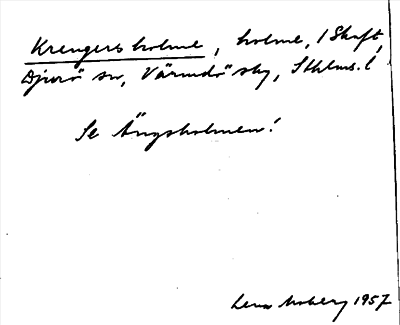 Krengersholme, holme, i Skaft,
Djurö sn, Värmdö sky, Sthlms. l
Se Ängsholmen!
Lena Moberg 1957